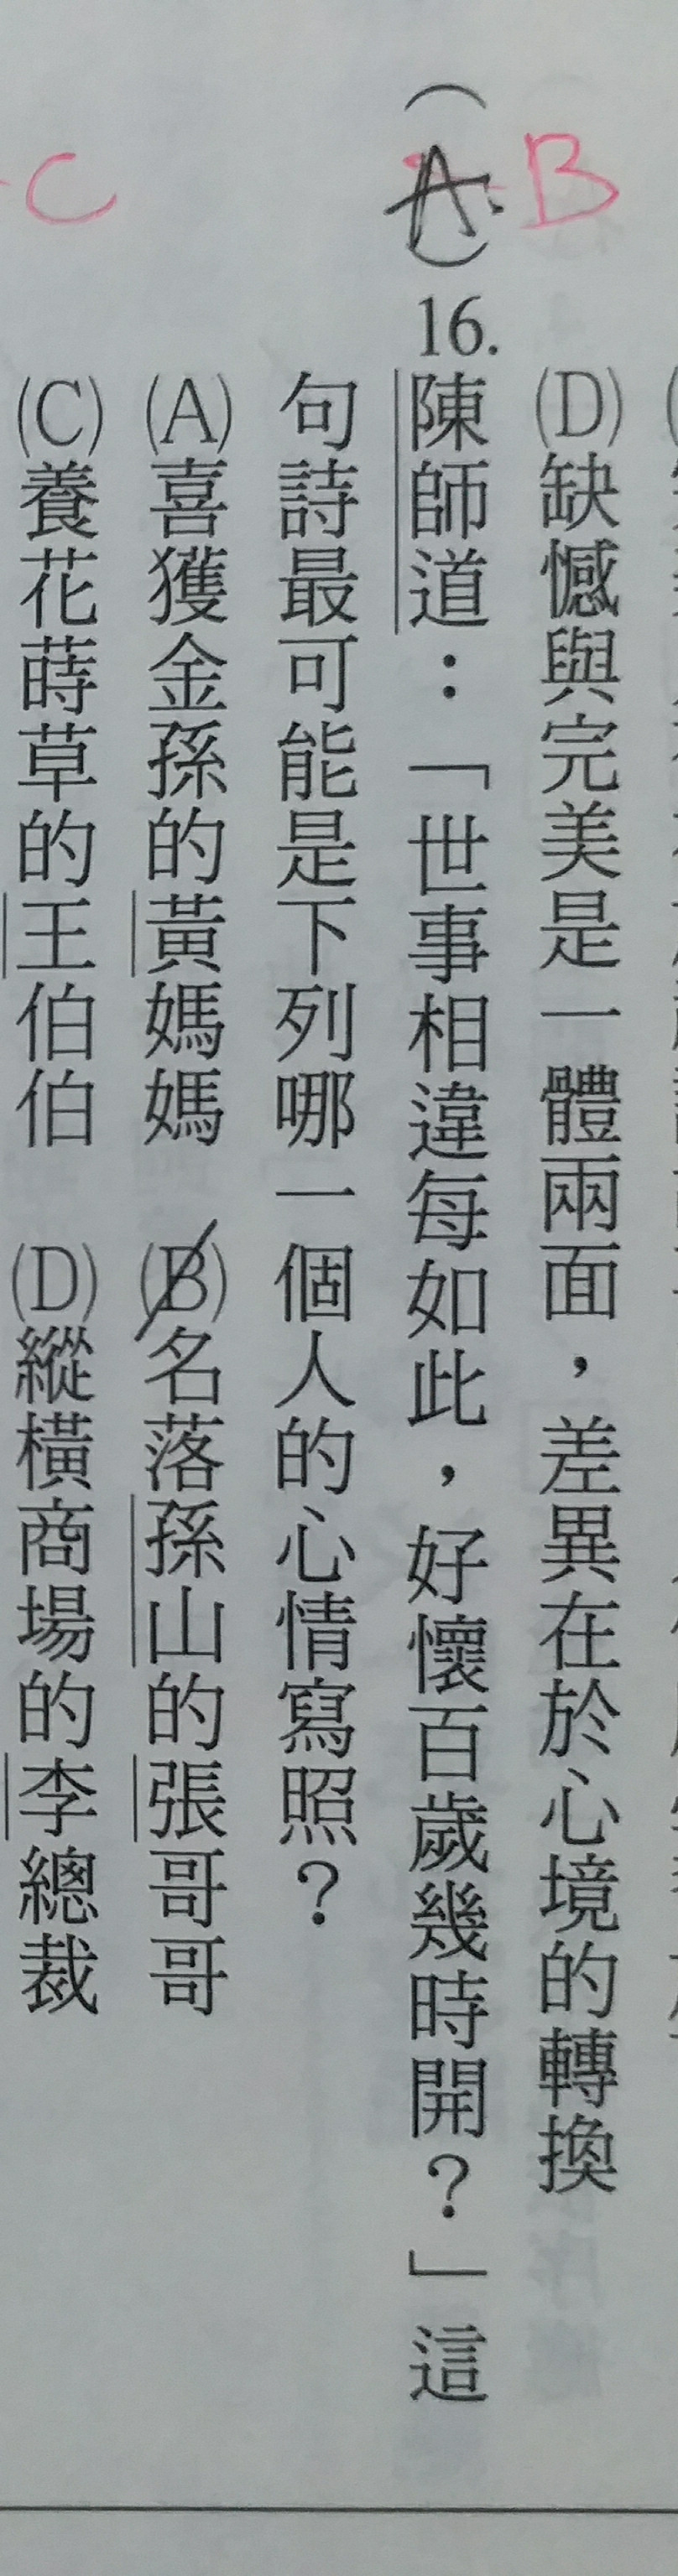 (D)缺憾與完美是一體兩面，差異在於心境的轉換
B
(A)16.陳師道：「世事相違每如此，好懷百歲幾時開？」這
句詩最可能是下列哪一個人的心情寫照？
(A)喜獲金孫的黃媽媽 (B)名落孫山的張哥哥
(C)養花蒔草的王伯伯 (D)縱橫商場的李總裁
C